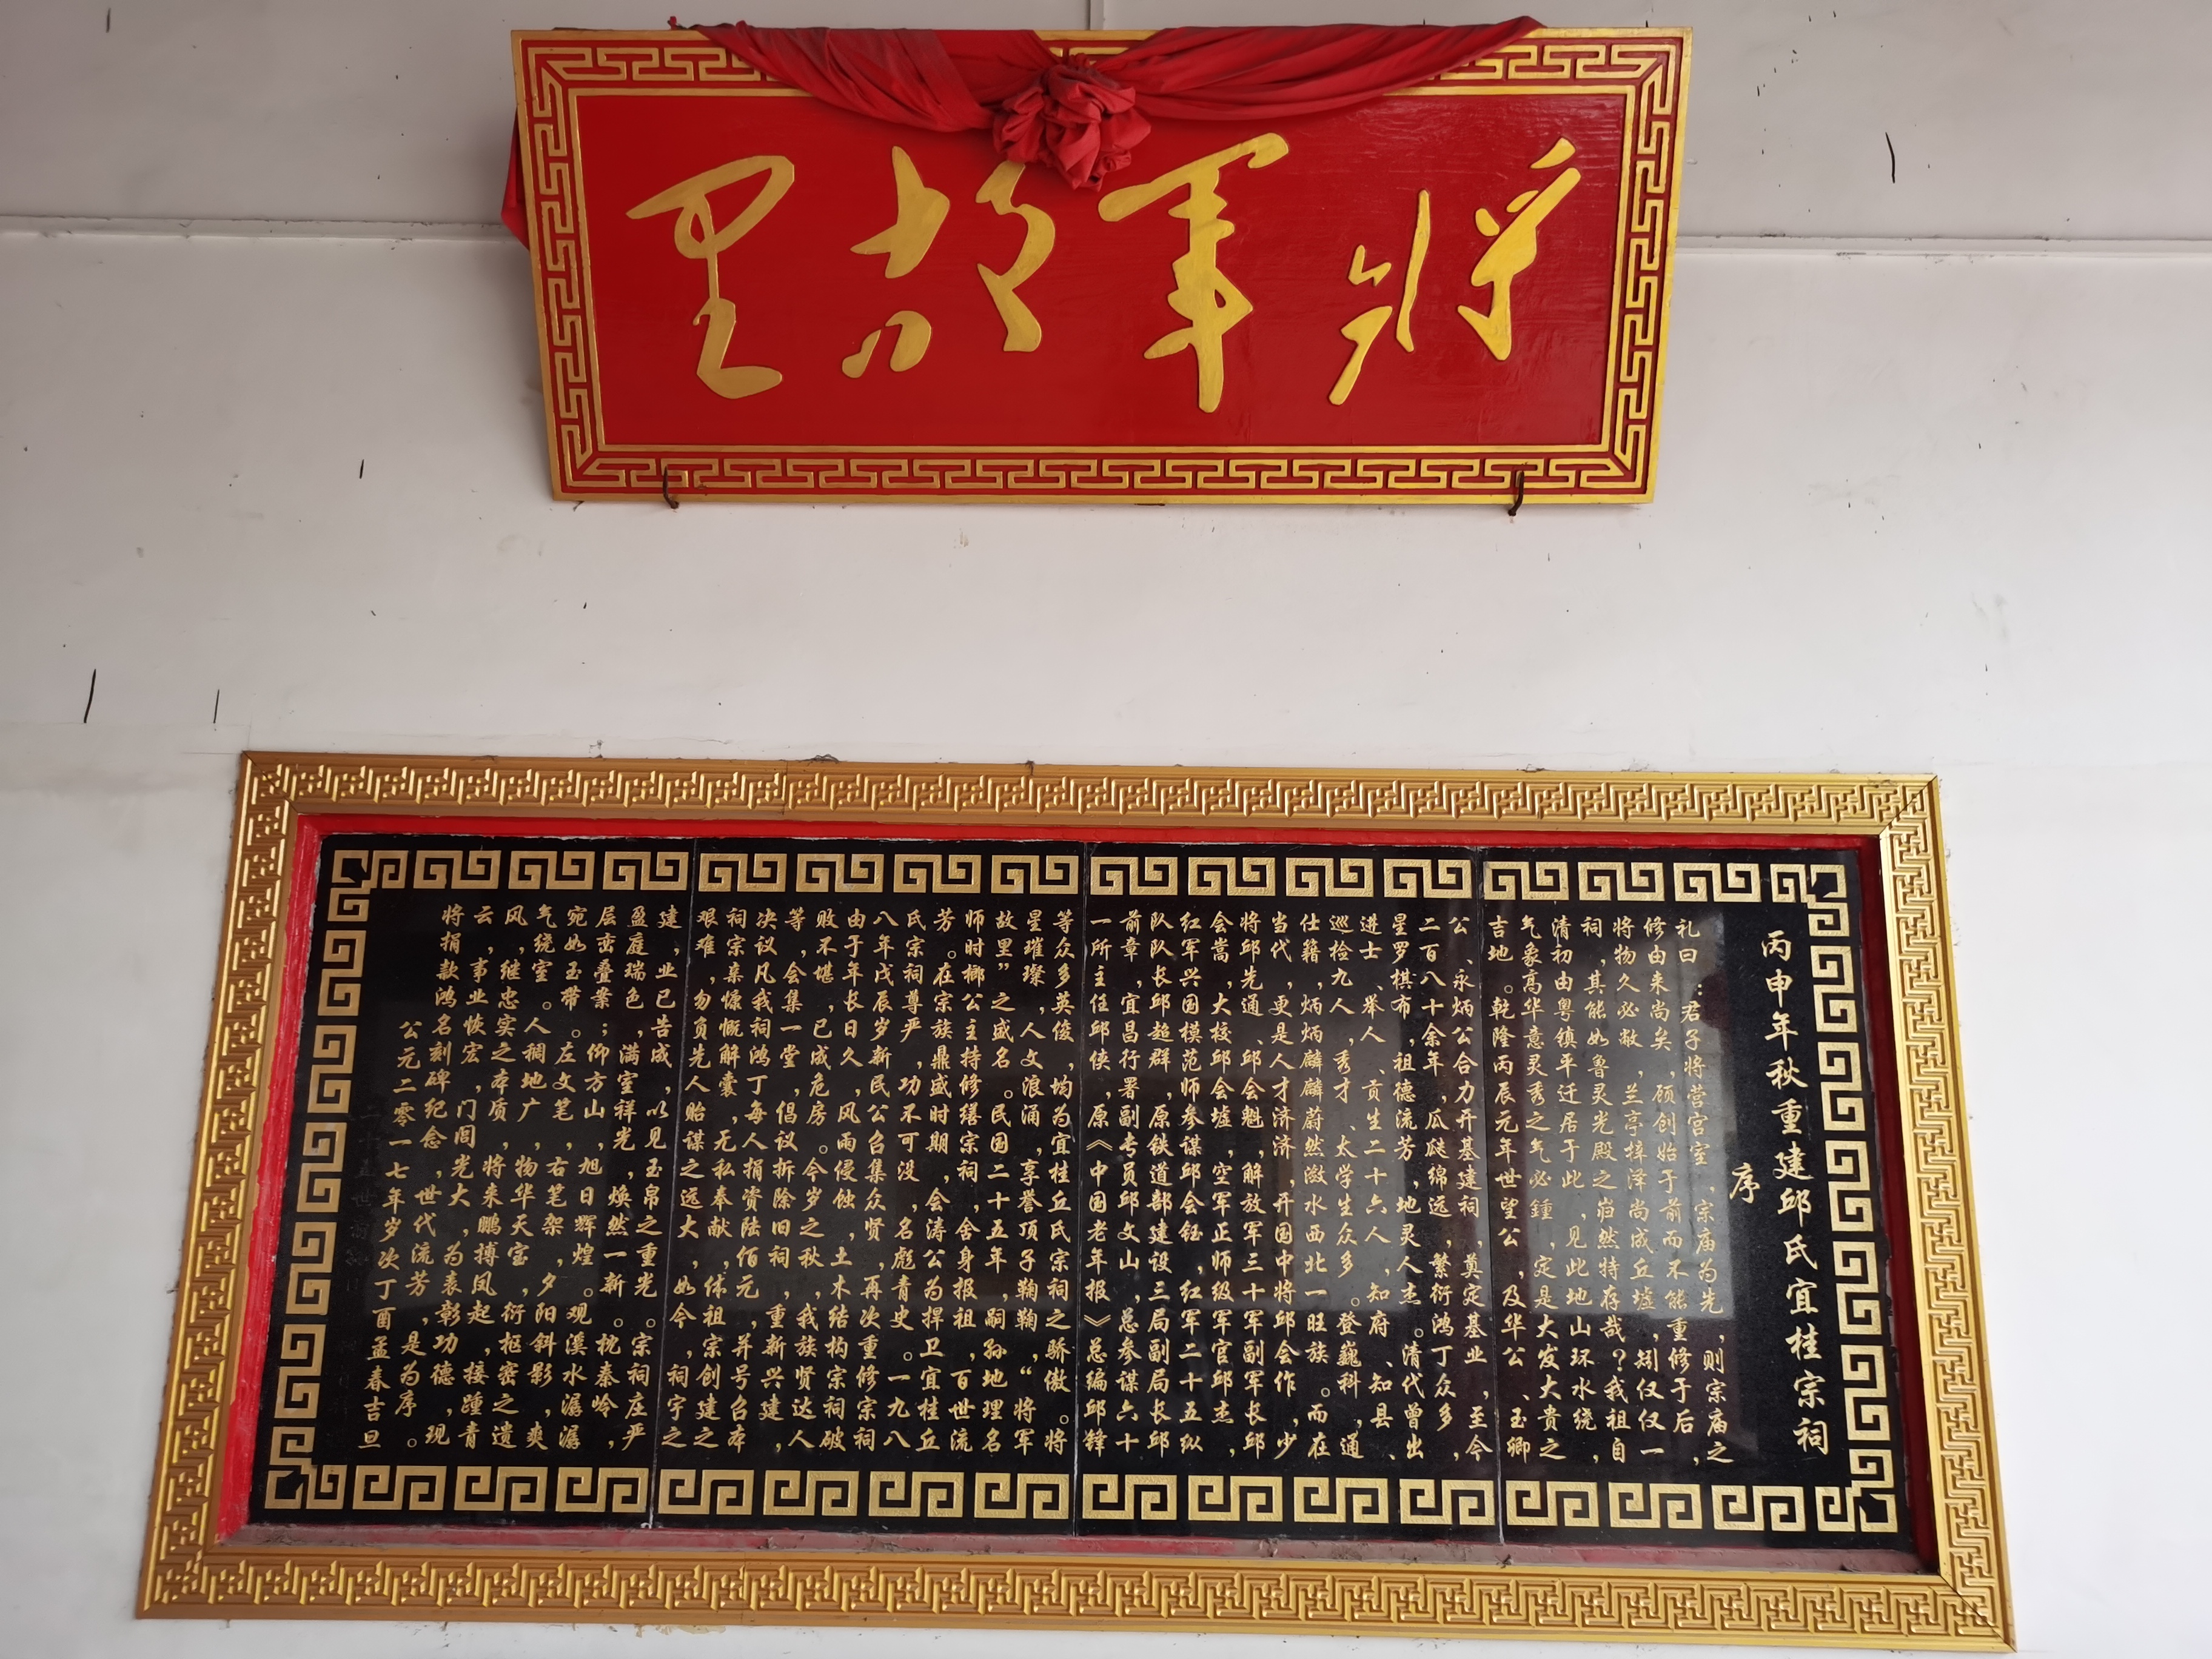 将军故里
丙申年秋重建邱氏宜桂宗祠
序
礼曰：君子将营宫室，宗庙为先，则宗庙之
修由来尚矣，顾创始于前而不能重修于后，
将物久必敝，兰亭梓泽尚成丘墟，矧仅仅一
祠，其能如鲁灵光殿之岿然特存哉？我祖自
清初由粤镇平迁居于此，见此地山环水绕，
气象高华意灵秀之气必鍾，定是大发大贵之
吉地。乾隆丙辰元年世望公，及华公、玉卿
公、永炳公合力开基建祠，奠定基业，至今
二百八十余年，瓜瓞绵远，繁衍鸿丁众多，
星罗棋布，祖德流芳，地灵人杰。清代曾出
进士、举人、贡生二十六人，知府、知县、
巡检九人，秀才、太学生众多。登巍科，通
仕籍，炳炳麟麟蔚然潋水西北一旺族。而在
当代，更是人才济济，开国中将邱会作，少
将邱先通、邱会魁，解放军三十军副军长邱
会嵩，大校邱会墟，空军正师级军官邱杰，
红军兴国模范师参谋邱会钰，红军二十五纵
队队长邱超群，原铁道部建设三局副局长邱
前章，宜昌行署副专员邱文山，总参谋六十
一所主任邱侠，原《中国老年报》总编邱锋
等众多英俊，均为宜桂丘氏宗祠之骄傲。将
星璀璨，人文浪涌，享誉顶子鞠鞠，“将军
故里”之盛名。民国二十五年，嗣孙地理名
师时榔公主持修缮宗祠，舍身报祖，百世流
芳。在宗族鼎盛时期，会涛公为捍卫宜桂丘
氏宗祠尊严，功不可没，名彪青史。一九八
八年戊辰岁新民公召集众贤，再次重修宗祠
由于年长日久，风雨侵蚀，土木结构宗祠破
败不堪，已成危房。今岁之秋，我族贤达人
等，会集一堂，倡议拆除旧祠，重新兴建，
决议凡我祠鸿丁每人捐资陆佰元，并号召本
祠宗亲慷慨解囊，无私奉献，体祖宗创建之
艰难，勿负先人贻谋之远大，如今，祠宇之
建，业已告成，以见玉帛之重光。宗祠庄严
盈庭瑞色，满室祥光，焕然一新。枕秦岭，
层峦叠嶂；仰方山，旭日辉煌。观溪水潺潺
宛如玉带。左文笔，右笔架，夕阳斜影，爽
气绕室。人稠地广，物华天宝，衍枢密之遗
风，继忠实之本质，将来鹏搏凤起，接踵青
云，事业恢宏，门闾光大，为表彰功德，现
将捐款鸿名刻碑纪念，世代流芳，是为序。
公元二零一七年岁次丁酉孟春吉旦